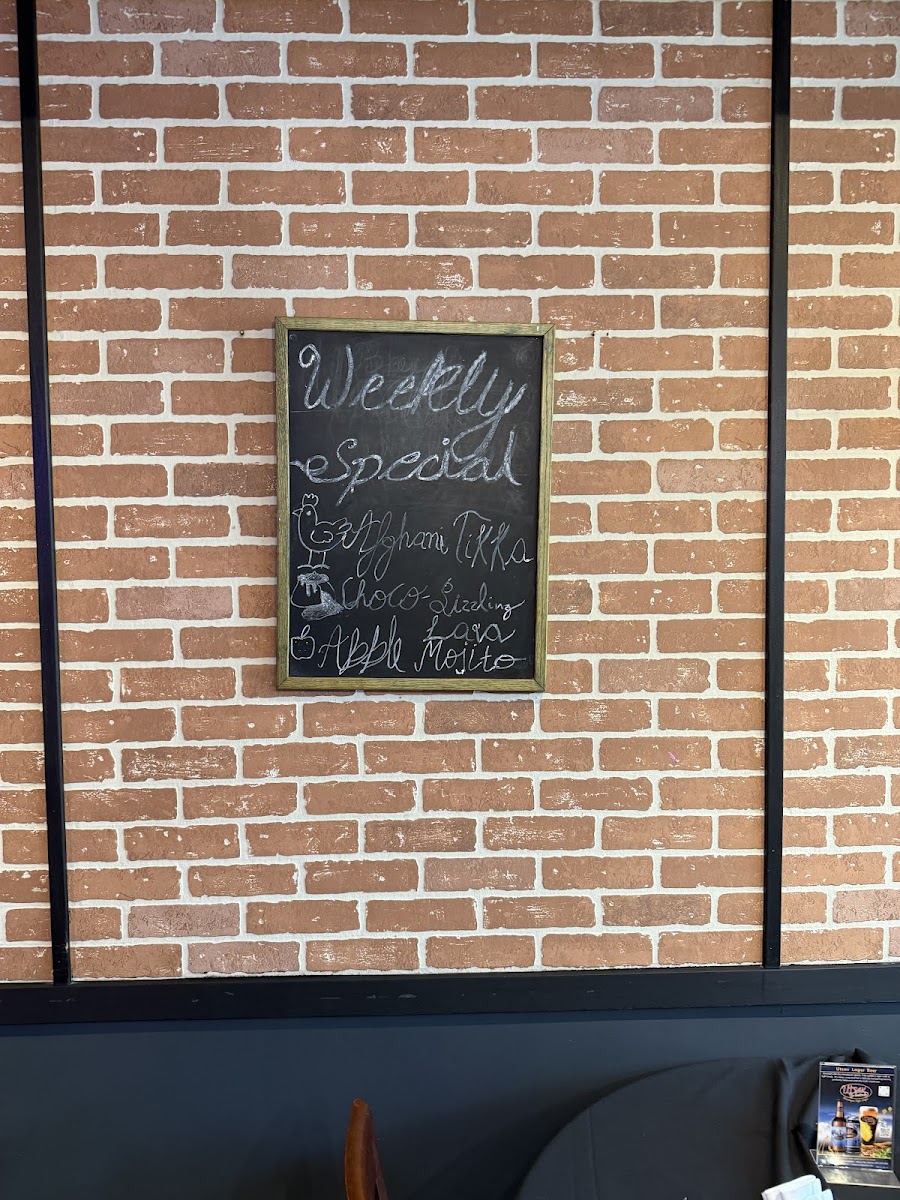 Weekly
Special
Afghani Tikka
Choco-Sizzling
Lava
Apple Mojito
Utsav Lager Beer
UTSAV